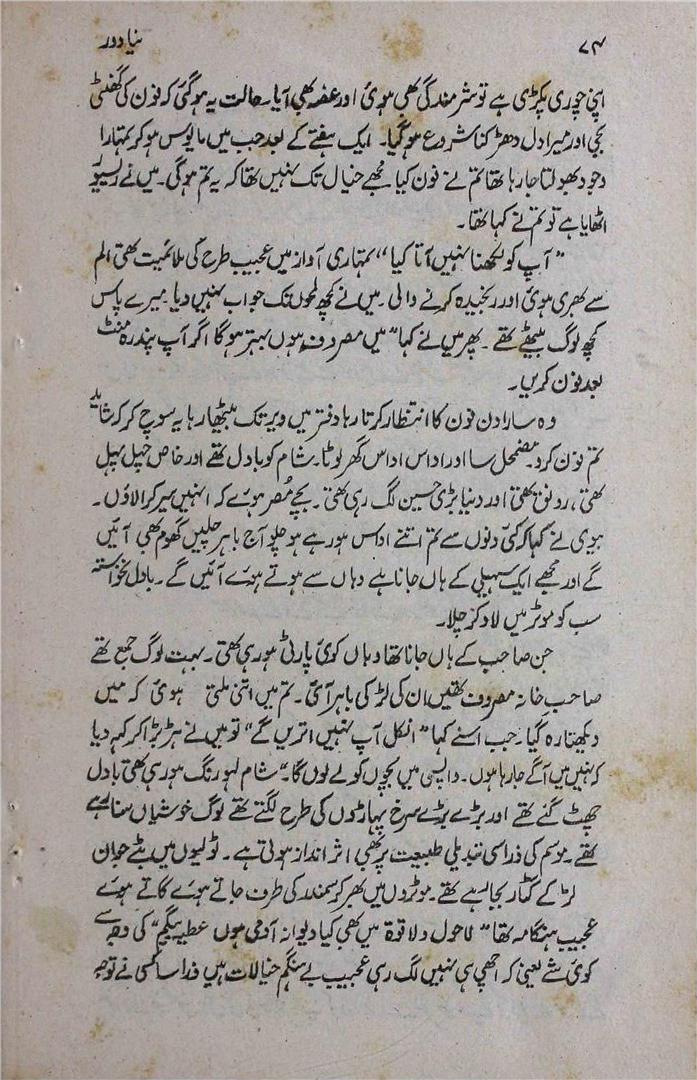 ۷۴ نیا دور
اپنی چوری پکڑی ہے تو شرمندگی بھی ہوئی اور غصہ بھی آیا۔ حالت یہ ہو گئی کہ فون کی گھنٹی
بجی اور میرا دل دھڑکنا شروع ہو گیا۔ ایک ہفتے کے بعد جب میں مایوس ہو کر تمہارا
وجود بھولتا جا رہا تھا تم نے فون کیا مجھے خیال تک نہیں تھا کہ یہ تم ہوگی۔ میں نے رسیور
اٹھایا ہے تو تم نے کہا تھا۔
”آپ کو لکھنا نہیں آتا کیا“ تمہاری آواز میں عجیب طرح کی ملائمیت تھی الم
سے بھری ہوئی اور رنجیدہ کرنے والی۔ میں نے کچھ لمحوں تک جواب نہیں دیا۔ میرے پاس
کچھ لوگ بیٹھے تھے۔ پھر میں نے کہا ”میں مصروف ہوں بہتر ہوگا اگر آپ پندرہ منٹ
بعد فون کریں۔
وہ سارا دن فون کا انتظار کرتا رہا دفتر میں دیر تک بیٹھا رہا یہ سوچ کر کہ شاید
تم فون کرو۔ مضمحل سا اور اداس اداس گھر لوٹا۔ شام کو بادل تھے اور خاص چہل پہل
تھی، رونق تھی اور دنیا بڑی حسین لگ رہی تھی۔ بچے مُصر ہوئے کہ انہیں سیر کرا لاؤں۔
بیوی نے کہا کہ کئی دنوں سے تم اتنے اداس ہو رہے ہو چلو آج باہر چلیں گھوم بھی آئیں
گے اور مجھے ایک سہیلی کے ہاں جانا ہے وہاں سے ہوتے ہوئے آئیں گے۔ بادل نخواستہ
سب کو موٹر میں لاد کر چلا۔
جن صاحب کے ہاں جانا تھا وہاں کوئی پارٹی ہو رہی تھی۔ بہت لوگ جمع تھے
صاحب خانہ مصروف تھیں ان کی لڑکی باہر آئی۔ تم میں اتنی ملتی ہوئی کہ میں
دیکھتا رہ گیا۔ جب اسنے کہا ”انکل آپ نہیں اتریں گے“ تو میں نے ہڑبڑا کر کہہ دیا
کہ نہیں میں آگے جا رہا ہوں۔ واپسی میں بچوں کو لے لوں گا۔“ شام لہو رنگ ہو رہی تھی بادل
چھٹ گئے تھے اور بڑے بڑے سرخ پہاڑوں کی طرح لگتے تھے لوگ خوشیاں منا رہے
تھے۔ موسم کی ذرا سی تبدیلی طبیعت پر بھی اثر انداز ہوتی ہے۔ ٹولیوں میں بٹے جوان
لڑکے گٹار بجا رہے تھے۔ موٹروں میں بھر کر سمندر کی طرف جاتے ہوئے گاتے ہوئے
عجیب ہنگامہ تھا ”لاحول ولا قوۃ میں بھی کیا دیوانہ آدمی ہوں عطیہ بیگم“ کی وجہ سے
کوئی شے یعنی کہ اچھی ہی نہیں لگ رہی عجیب بے ہنگم خیالات ہیں ذرا سا کسی نے توجہ